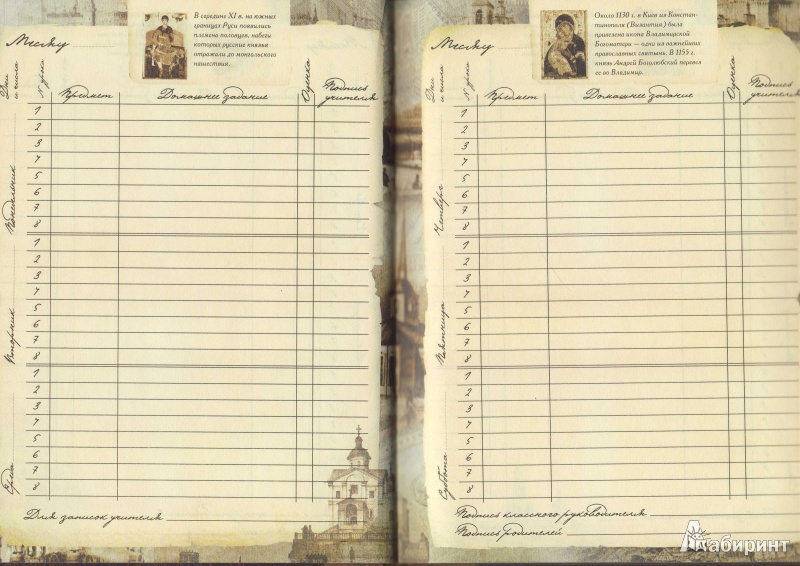 В середине XI в. на южных
границах Руси появились
племена половцев, набеги
которых русские князья
отражали до монгольского
нашествия.
Месяц
Дни и числа
№ урока
Предмет
Домашнее задание
Оценка
Подпись
учителя
Понедельник
1
2
3
4
5
6
7
8
Вторник
1
2
3
4
5
6
7
8
Среда
1
2
3
4
5
6
7
8
Для записок учителя
Около 1130 г. в Киев из Констан-
тинополя (Византия) была
привезена икона Владимирской
Богоматери — одна из важнейших
православных святынь. В 1155 г.
князь Андрей Боголюбский перевез
ее во Владимир.
Месяц
Дни и числа
№ урока
Предмет
Домашнее задание
Оценка
Подпись
учителя
Четверг
1
2
3
4
5
6
7
8
Пятница
1
2
3
4
5
6
7
8
Суббота
1
2
3
4
5
6
7
8
Подпись классного руководителя
Подпись родителей
Лабиринт